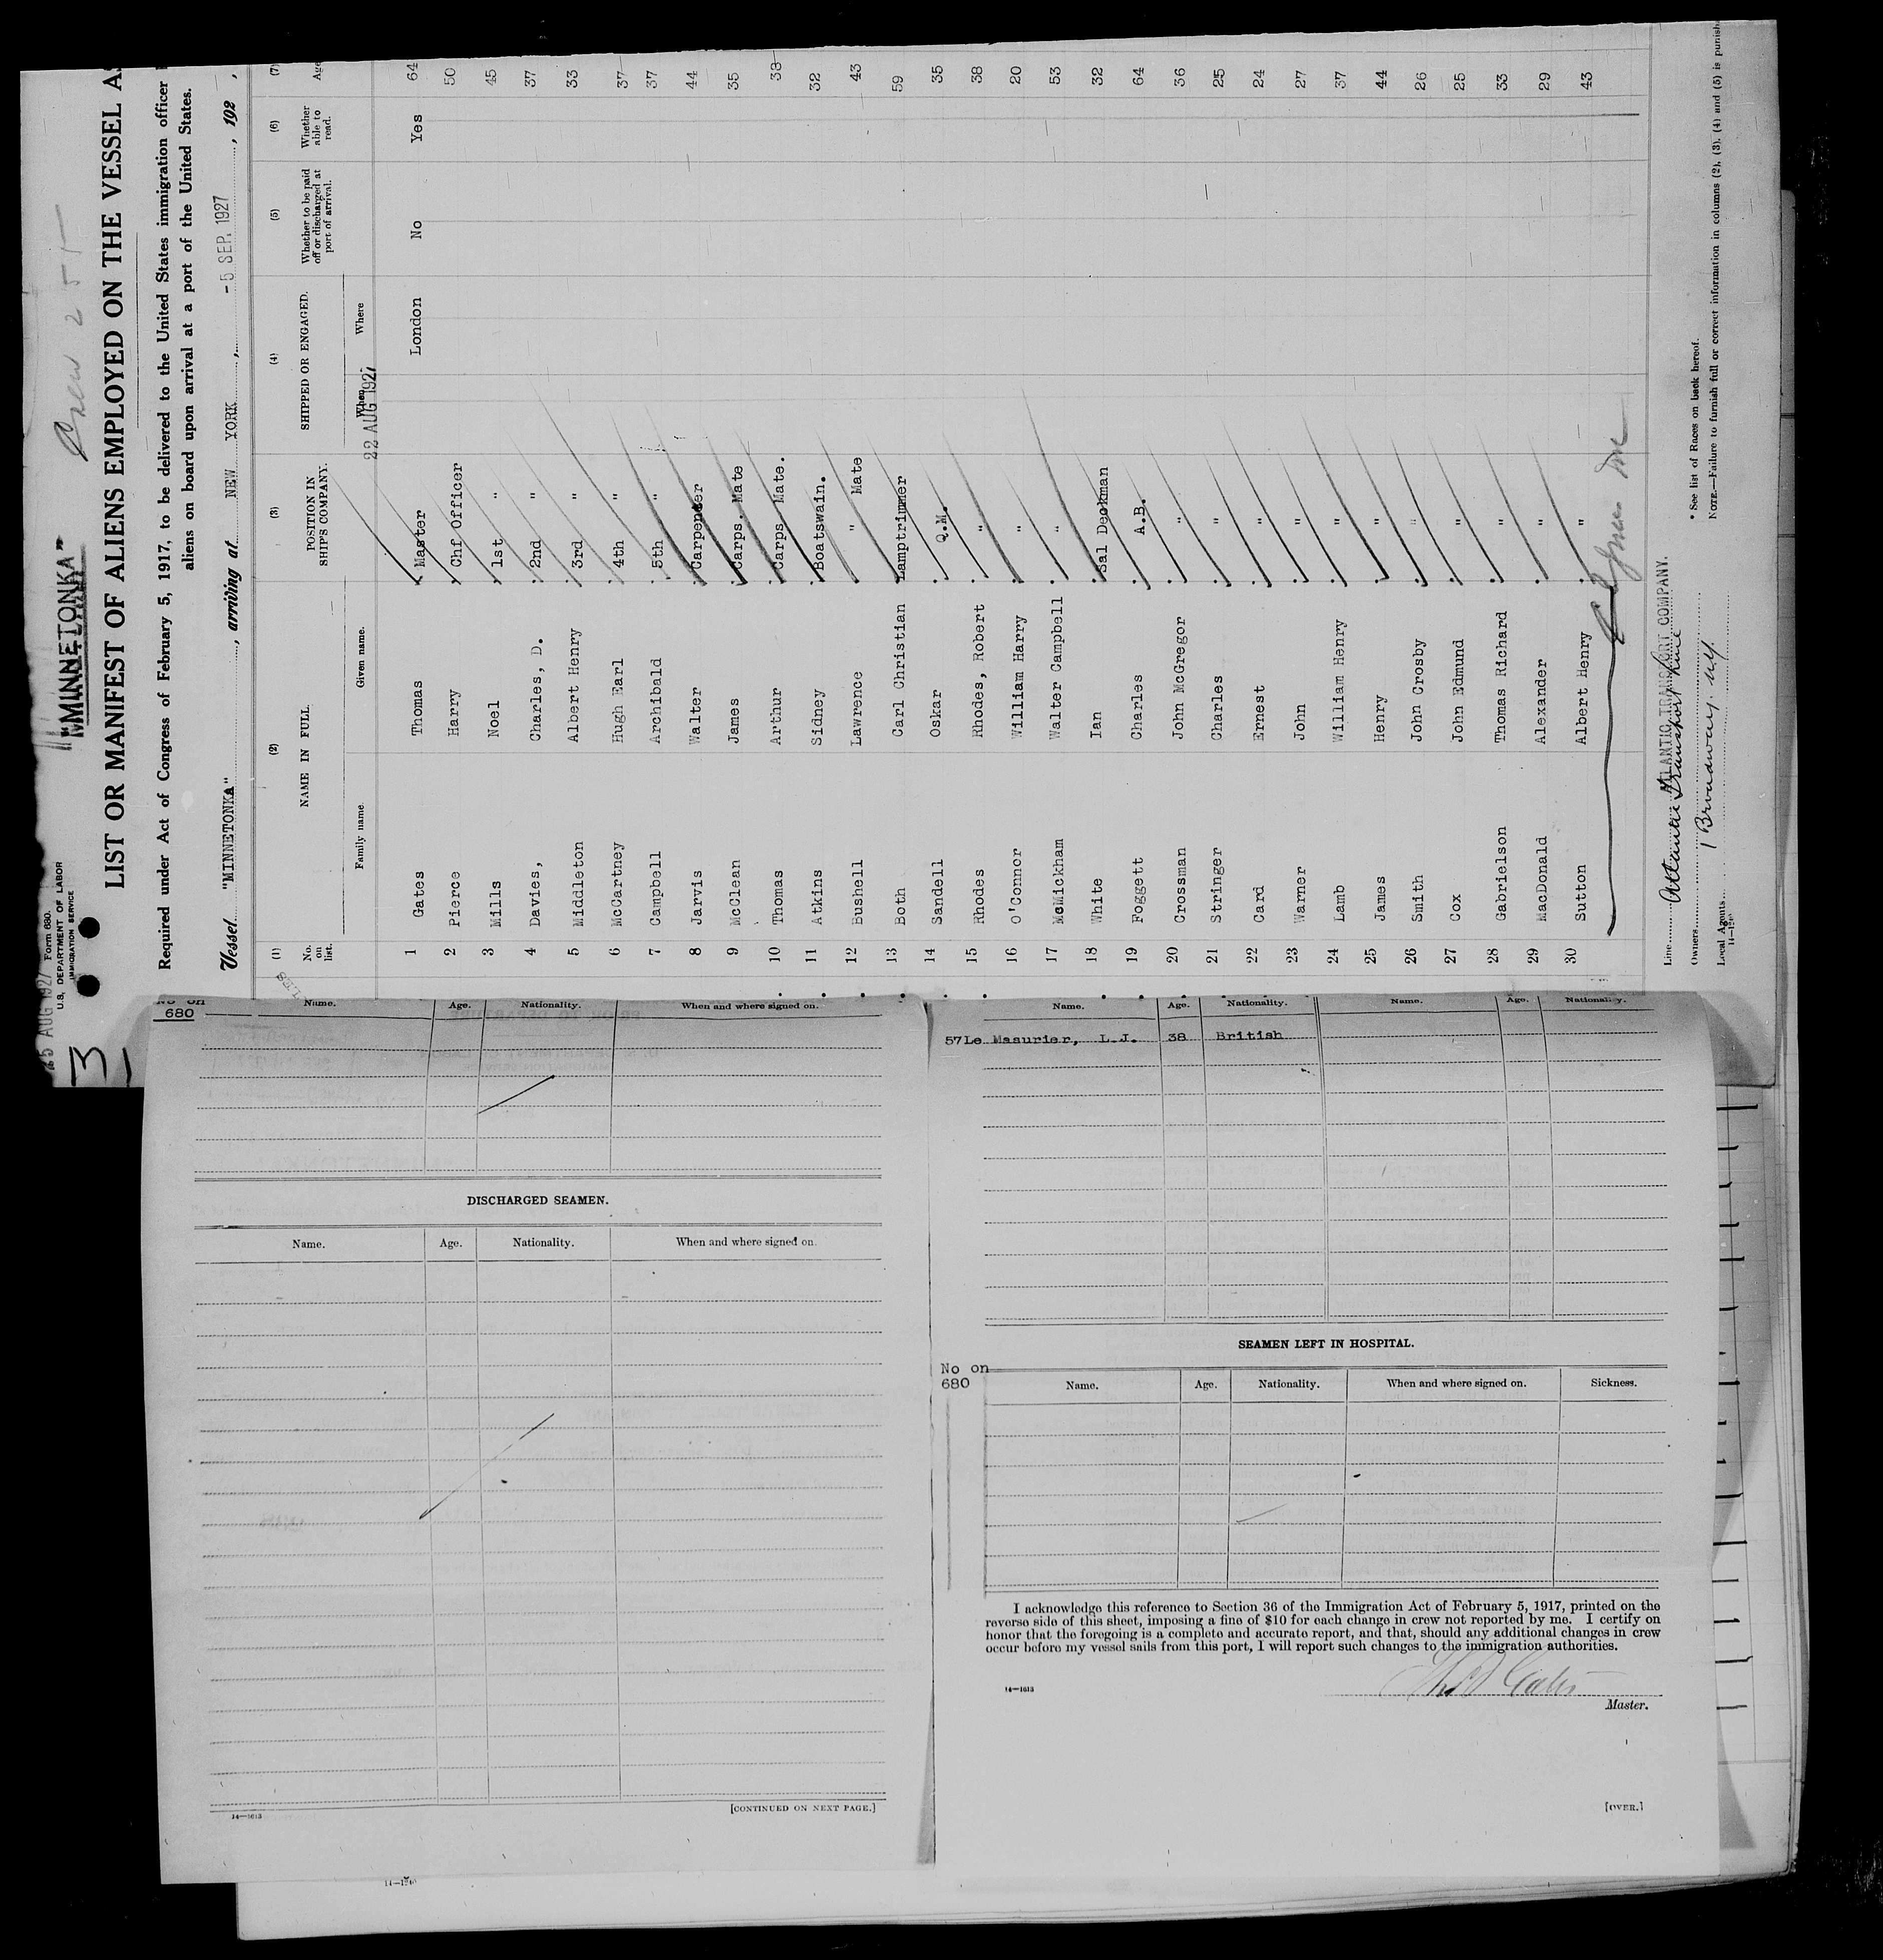 Form 680.
U.S. DEPARTMENT OF LABOR
IMMIGRATION SERVICE
"MINNETONKA"
Crew 251
LIST OR MANIFEST OF ALIENS EMPLOYED ON THE VESSEL AS
Required under Act of Congress of February 5, 1917, to be delivered to the United States immigration officer
aliens on board upon arrival at a port of the United States.
Vessel "MINNETONKA", arriving at NEW YORK, -5 SEP. 1927, 192 ,
(1) (2) (3) (4) (5) (6) (7)
No. on list. NAME IN FULL POSITION IN SHIP'S COMPANY. SHIPPED OR ENGAGED. Whether to be paid off or discharged at port of arrival. Whether able to read. Age
Family name Given name. When Where
22 AUG 1927
1 Gates Thomas Master London No Yes 64
2 Pierce Harry Chf Officer 50
3 Mills Noel 1st " 45
4 Davies, Charles, D. 2nd " 37
5 Middleton Albert Henry 3rd " 33
6 McCartney Hugh Earl 4th " 37
7 Campbell Archibald 5th " 37
8 Jarvis Walter Carpenter 44
9 McClean James Carps. Mate 35
10 Thomas Arthur Carps Mate. 38
11 Atkins Sidney Boatswain. 32
12 Bushell Lawrence " Mate 43
13 Both Carl Christian Lamptrimmer 59
14 Sandell Oskar Q.M. 35
15 Rhodes Rhodes, Robert " 38
16 O'Connor William Harry " 20
17 McMickham Walter Campbell " 53
18 White Ian Sal Deckman 32
19 Foggett Charles A.B. 64
20 Crossman John McGregor " 36
21 Stringer Charles " 25
22 Card Ernest " 24
23 Warner John " 27
24 Lamb William Henry " 37
25 James Henry " 44
26 Smith John Crosby " 26
27 Cox John Edmund " 25
28 Gabrielson Thomas Richard " 33
29 MacDonald Alexander " 29
30 Sutton Albert Henry " 43
Line Atlantic Transport Line
ATLANTIC TRANSPORT COMPANY.
Owners 1 Broadway. N.Y.
Local Agents
* See list of Races on back hereof.
NOTE.—Failure to furnish full or correct information in columns (2), (3), (4) and (5) is punish
25 AUG 1927
3
No on
680
Name. Age. Nationality. When and where signed on.
DISCHARGED SEAMEN.
Name. Age. Nationality. When and where signed on.
14—1613
[CONTINUED ON NEXT PAGE.]
Name. Age. Nationality. Name. Age. Nationality.
57 Le Masurier, L.J. 38 British
SEAMEN LEFT IN HOSPITAL.
No on
680
Name. Age. Nationality. When and where signed on. Sickness.
I acknowledge this reference to Section 36 of the Immigration Act of February 5, 1917, printed on the
reverse side of this sheet, imposing a fine of $10 for each change in crew not reported by me. I certify on
honor that the foregoing is a complete and accurate report, and that, should any additional changes in crew
occur before my vessel sails from this port, I will report such changes to the immigration authorities.
14—1613
Gates
Master.
[OVER.]